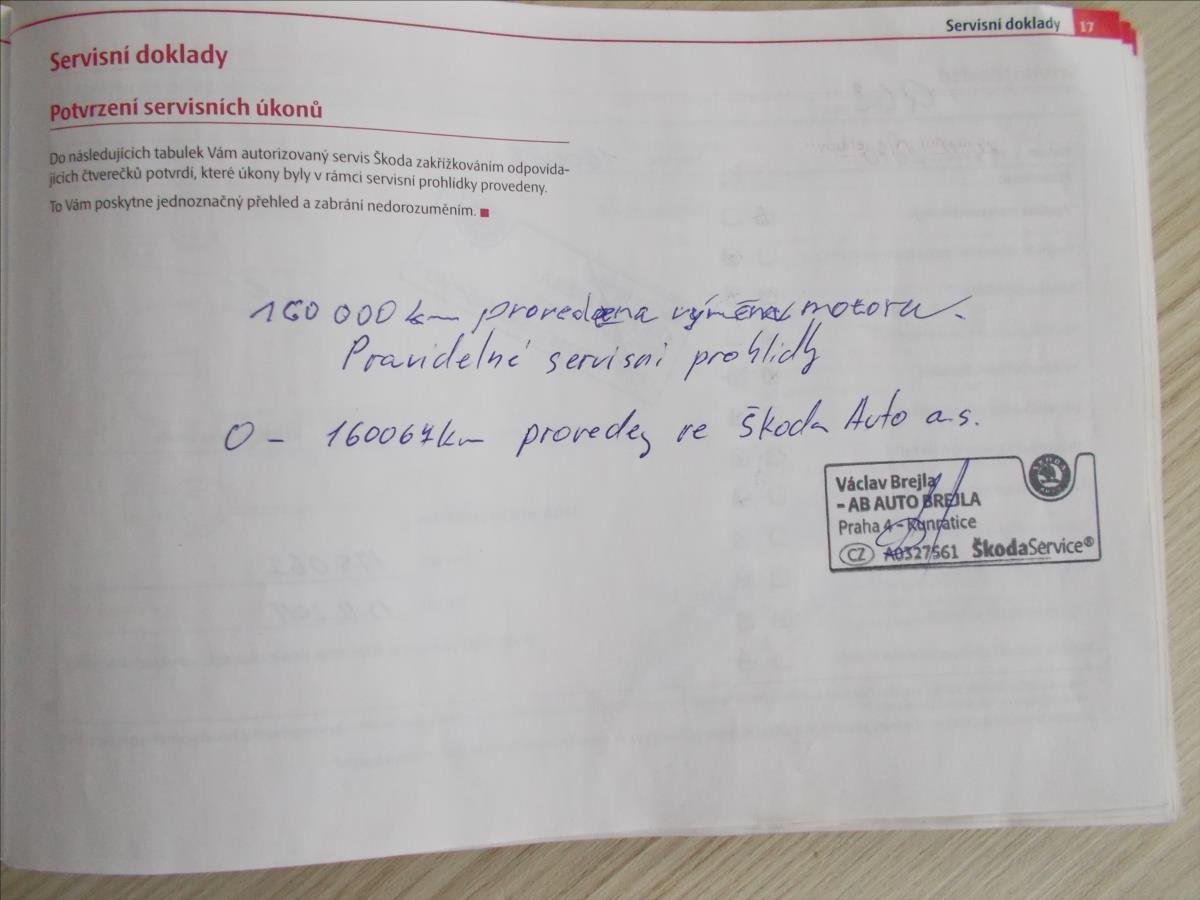 Servisní doklady 17
Servisní doklady
Potvrzení servisních úkonů
Do následujících tabulek Vám autorizovaný servis Škoda zakřížkováním odpovída-
jících čtverečků potvrdí, které úkony byly v rámci servisní prohlídky provedeny.
To Vám poskytne jednoznačný přehled a zabrání nedorozuměním.
160 000 km provedena výměna motoru.
Pravidelné servisni prohlidky
0 - 160067km provedey ve Škoda Auto a.s.
Václav Brejla
- AB AUTO BREJLA
Praha 4 - Kunratice
CZ A0327561 ŠkodaService®